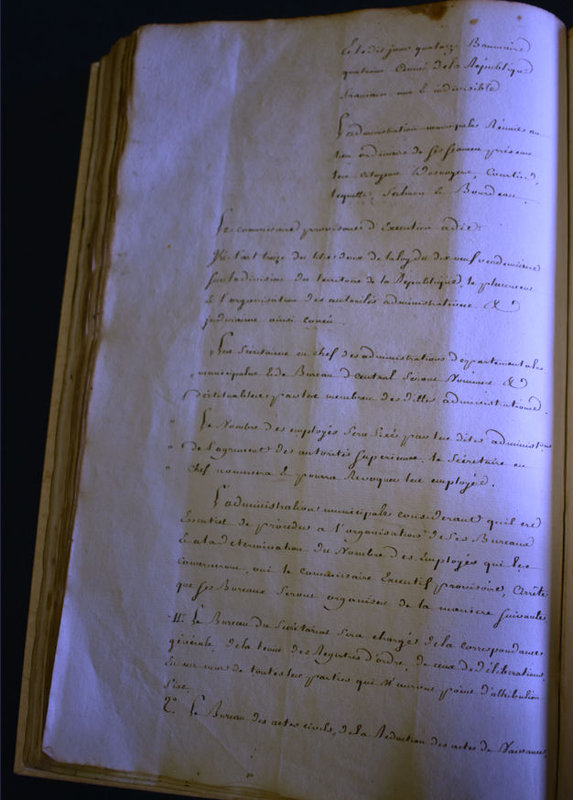 Cetedit jour quatorze Brumaire
quatrieme Année de la République
francaise une & indivisible
L'administration municipale Réunie au
lieu ordinaire de ses séances présens
les citoyens Courtin,
Salmon & Bourdeau
Le commissaire provisoire d'Execution a dit
l'art treize du titre deux de la loy du dix neuf vendemiaire
sur la division du territoire de la République, le placement
& l'organisation des autorités administratives &
judiciaires ainsi concu.
Les Secrétaires en chef des administrations departementales
municipales & de Bureau Central seront Nommés &
déstituables par les membres des dittes administrations.
Le Nombre des employés sera fixé par les dites administrons
de l'agrement des autorités superieures. le Sécrétaire en
chef nommera & pourra Revoquer les employés.
L'administration municipale considerant qu'il est
Essentiel de procéder a l'organisation de ses Bureaux
& a la determination du Nombre des Employés qui les
oui le commissaire Executif provisoire, Arrête
que ses Bureaux seront organisés de la maniere suivante
1º. Le Bureau du Secrétariat sera chargé de la correspondance
générale, de la tenue des Registres d'ordre, de ceux de déliberations,
de toutes les parties qui n'auront point d'attribution
fixe.
2º. Le Bureau des actes civils, de la Rédaction des actes de Naissances